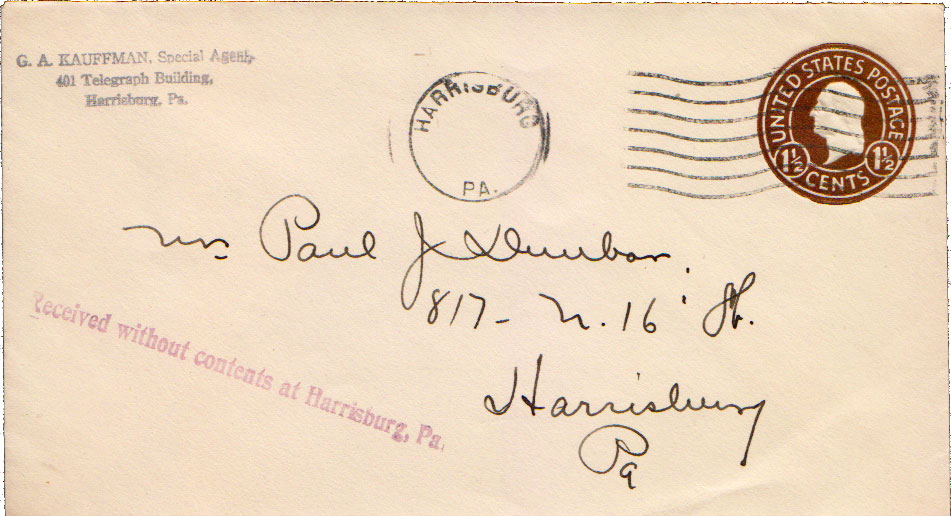 G. A. KAUFFMAN, Special Agent,
401 Telegraph Building,
Harrisburg, Pa.
HARRISBURG
PA.
UNITED STATES POSTAGE
1½ CENTS 1½
Mrs Paul J Dunbar,
817- N. 16' St.
Harrisburg
Pa
Received without contents at Harrisburg, Pa.